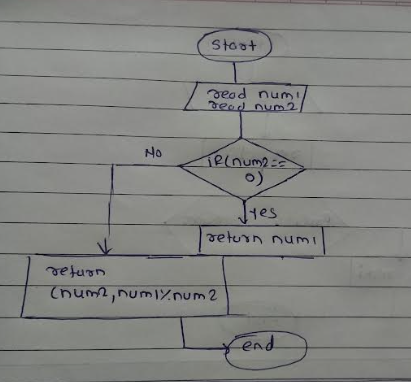 Start
read num1
read num2
if(num2==
0)
No
yes
return num1
return
(num2,num1%num2
end